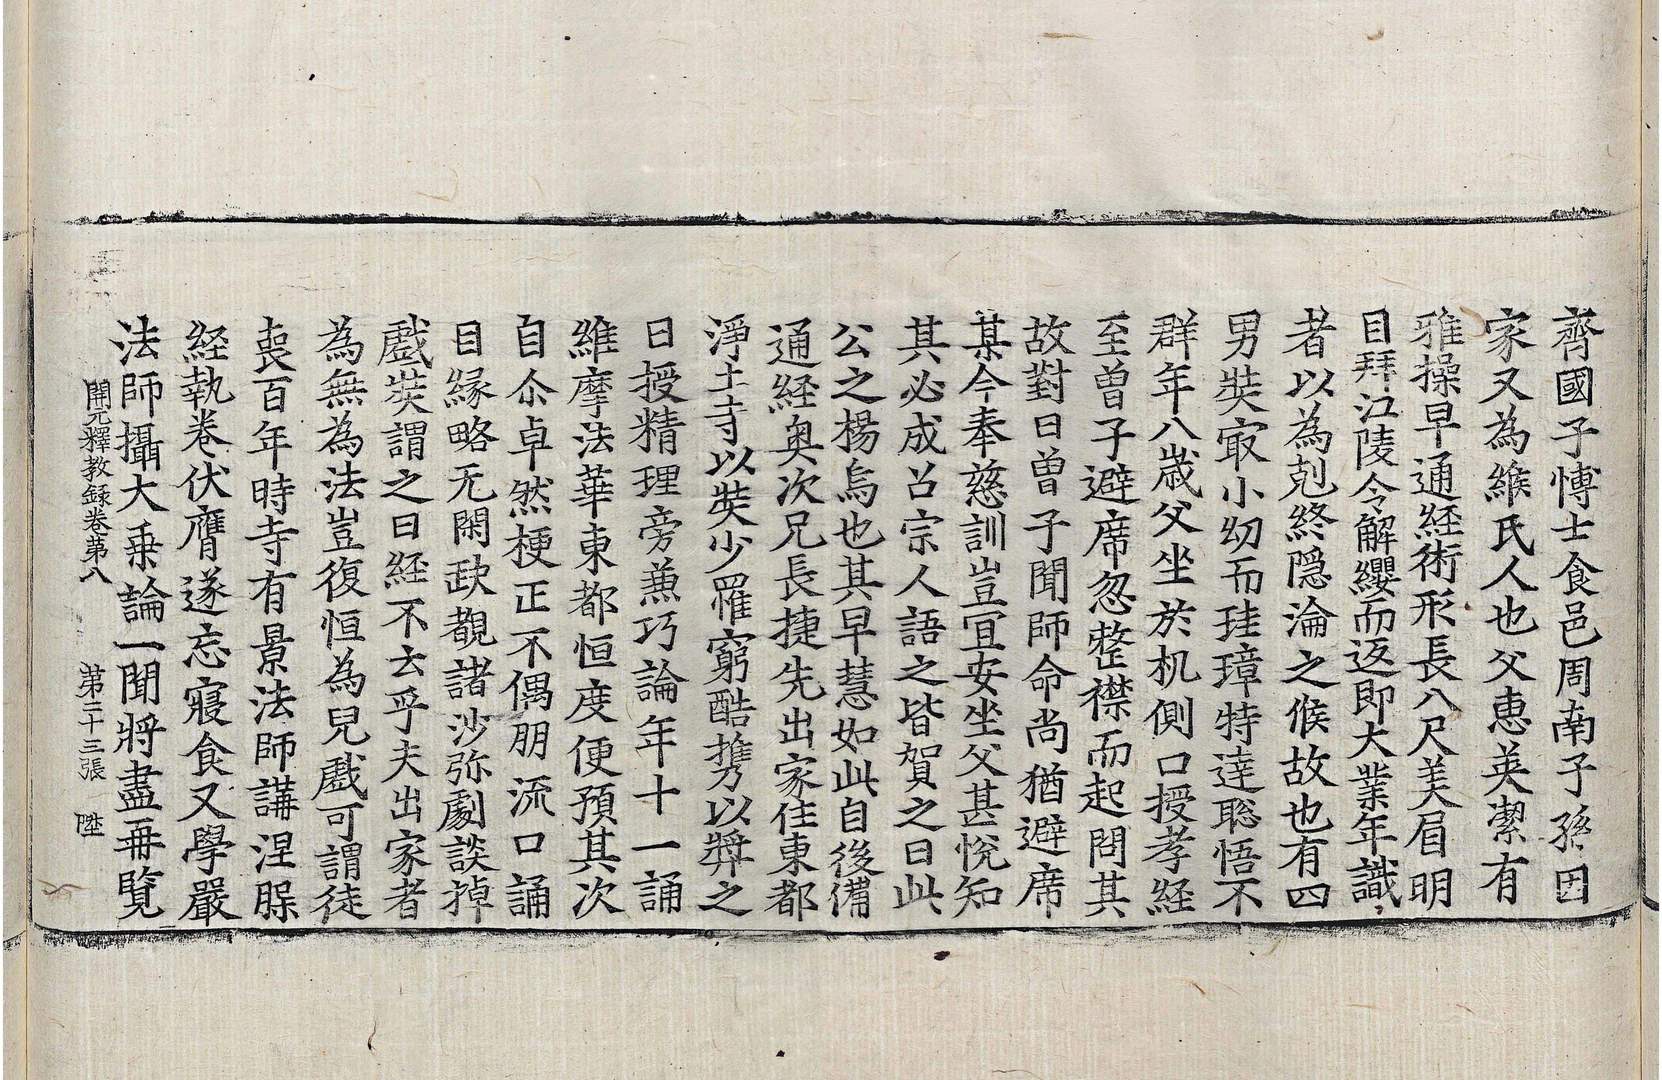 齊國子愽士食邑周南子孫因
家又為緱氏人也父惠英潔有
雅操早通経術形長八尺美眉明
目拜江陵令解纓而返即大業年識
者以為剋終隠淪之候故也有四
男奘㝡小㓜而珪璋特達聡悟不
群年八歳父坐於机側口授孝経
至曽子避席忽整襟而起問其
故對曰曽子聞師命尚猶避席
某今奉慈訓豈冝安坐父甚悅知
其必成召宗人語之皆賀之曰此
公之楊烏也其早慧如此自後備
通経奥次兄長捷先出家住東都
淨土寺以奘少罹窮酷携以弉之
日授精理旁兼巧論年十一誦
維摩法華東都恒度便預其次
自尒卓然梗正不偶朋流口誦
目縁略无閑歇覩諸沙弥劇談掉
戲奘謂之曰經不云乎夫出家者
為無為法豈復恒為兒戲可謂徒
喪百年時寺有景法師講涅槃
経執卷伏膺遂忘寢食又學嚴
法師攝大乗論一聞將盡再覽
開元釋教録卷第八 第二十三張 陞